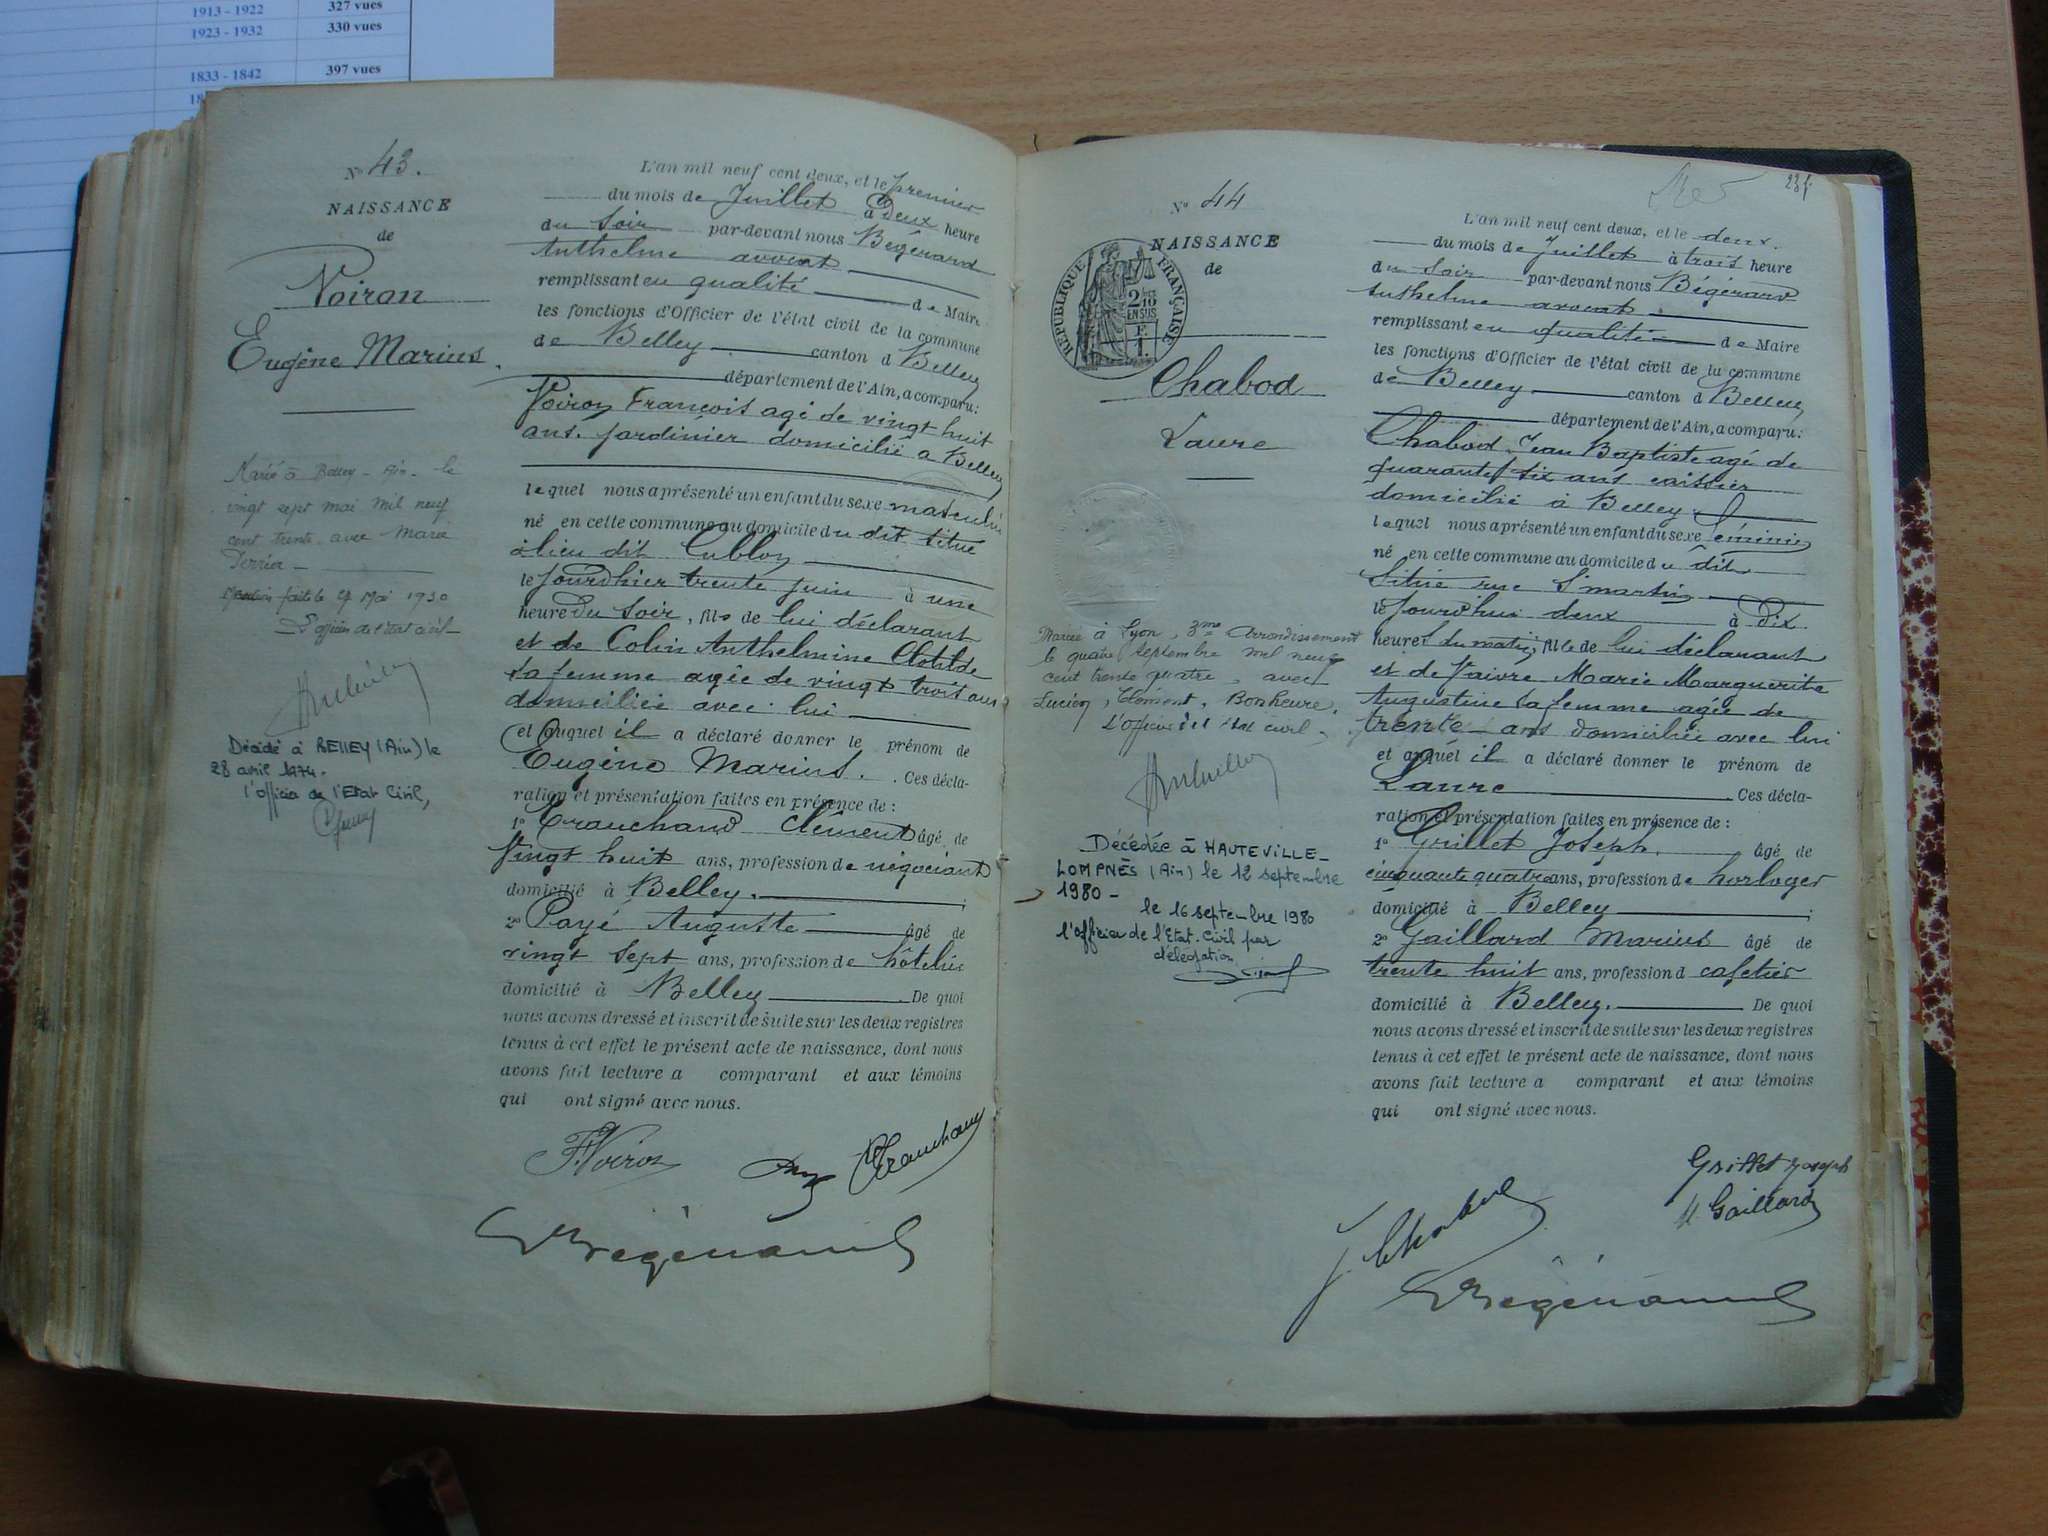 1913 - 1922 327 vues
1923 - 1932 330 vues
1833 - 1842 397 vues
N° 43.
NAISSANCE
de
Voiron
Eugène Marius
Marié à Belley - Ain - le
vingt sept mai mil neuf
cent trente avec Marie
Perrier -
Mention faite le 27 Mai 1930
L'officier de l'état civil
Décédé à BELLEY (Ain) le
28 avril 1974.
l'officier de l'Etat Civil,
L'an mil neuf cent deux, et le premier
du mois de Juillet à Deux heure
du soir par-devant nous Bégérard
Anthelme avocat
remplissant en qualité de Maire
les fonctions d'Officier de l'état civil de la commune
de Belley canton d Belley
département de l'Ain, a comparu:
Voiron François agé de vingt huit
ans. jardinier domicilié a Belley
lequel nous a présenté un enfant du sexe masculin
né en cette commune au domicile du dit situé
à lieu dit
le jourd'hier trente juin à une
heure du soir, fils de lui déclarant
et de Colin Anthelmine Clotilde
sa femme agée de vingt trois ans
domiciliée avec lui
et auquel il a déclaré donner le prénom de
Eugène Marius. Ces décla-
ration et présentation faites en présence de :
1° Tranchand Clément âgé de
Vingt huit ans, profession de négociant
domicilié à Belley. ;
2° Payé Auguste âgé de
vingt sept ans, profession de hôtelier
domicilié à Belley De quoi
nous avons dressé et inscrit de suite sur les deux registres
tenus à cet effet le présent acte de naissance, dont nous
avons fait lecture a comparant et aux témoins
qui ont signé avec nous.
F. Voiron
Tranchand
Bégérard
23f.
N° 44
NAISSANCE
de
RÉPUBLIQUE FRANÇAISE
2/10 EN SUS
Chabod
Laure
Mariée à Lyon, 3me Arrondissement
le quatre septembre mil neuf
cent trente quatre, avec
Lucien, Clément, Bonheure.
L'officier de l'état civil
Décédée à HAUTEVILLE-
LOMPNÈS (Ain) le 12 septembre
1980 -
le 16 septembre 1980
l'officier de l'Etat-Civil par
délégation
L'an mil neuf cent deux, et le deux.
du mois de Juillet à trois heure
du soir par-devant nous Bégérard
Anthelme avocat
remplissant en qualité de Maire
les fonctions d'Officier de l'état civil de la commune
de Belley canton d Belley
département de l'Ain, a comparu:
Chabod Jean Baptiste agé de
quarante six ans caissier
domicilié à Belley
lequel nous a présenté un enfant du sexe féminin
né en cette commune au domicile du dit
Situé rue St martin
le jourd'hui deux à dix
heures du matin, fille de lui déclarant
et de Faivre Marie Marguerite
Augustine sa femme agée de
trente ans domiciliée avec lui
et auquel il a déclaré donner le prénom de
Laure Ces décla-
ration et présentation faites en présence de :
1° Grillet Joseph. âgé de
cinquante quatre ans, profession de horloger
domicilié à Belley ;
2° Gaillard Marius âgé de
trente huit ans, profession d cafetier
domicilié à Belley. De quoi
nous avons dressé et inscrit de suite sur les deux registres
tenus à cet effet le présent acte de naissance, dont nous
avons fait lecture a comparant et aux témoins
qui ont signé avec nous.
Grillet Joseph
M Gaillard
J. Chabod
Bégérard